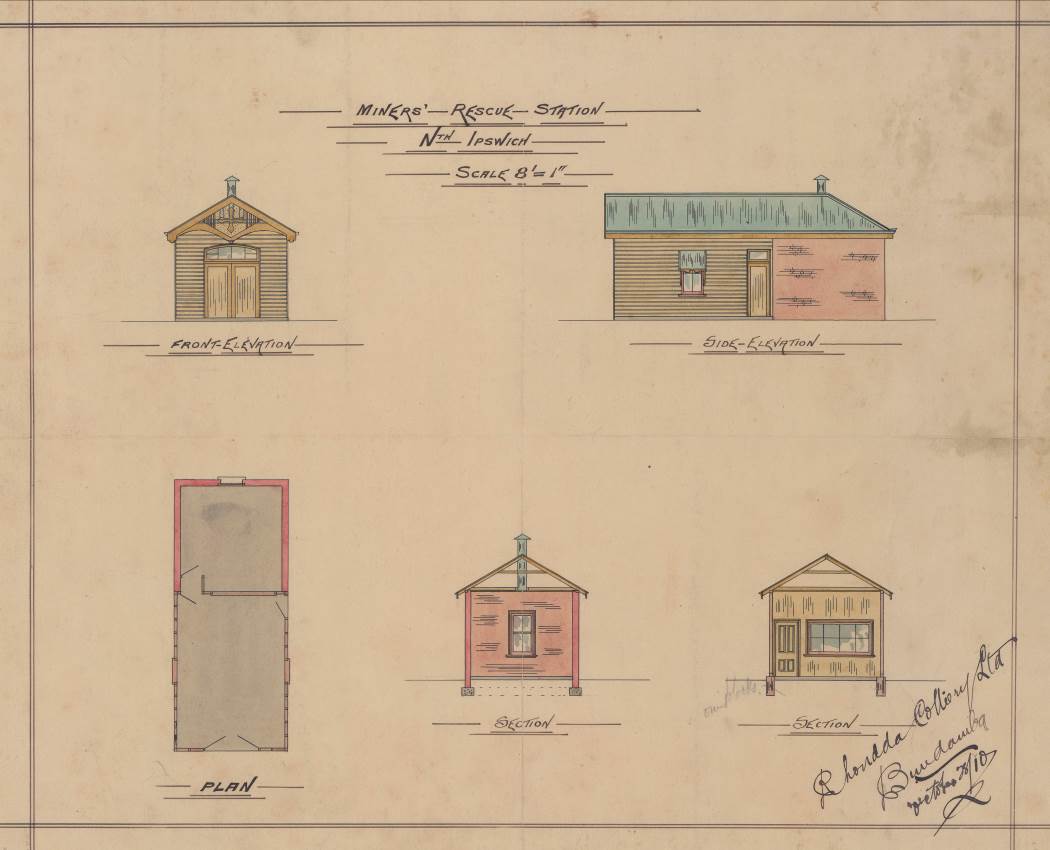 MINERS' RESCUE STATION
NTH IPSWICH
SCALE 8'= 1"
FRONT-ELEVATION
SIDE-ELEVATION
SECTION
SECTION
PLAN
Rhondda Colliery Ltd
Bundamba
October